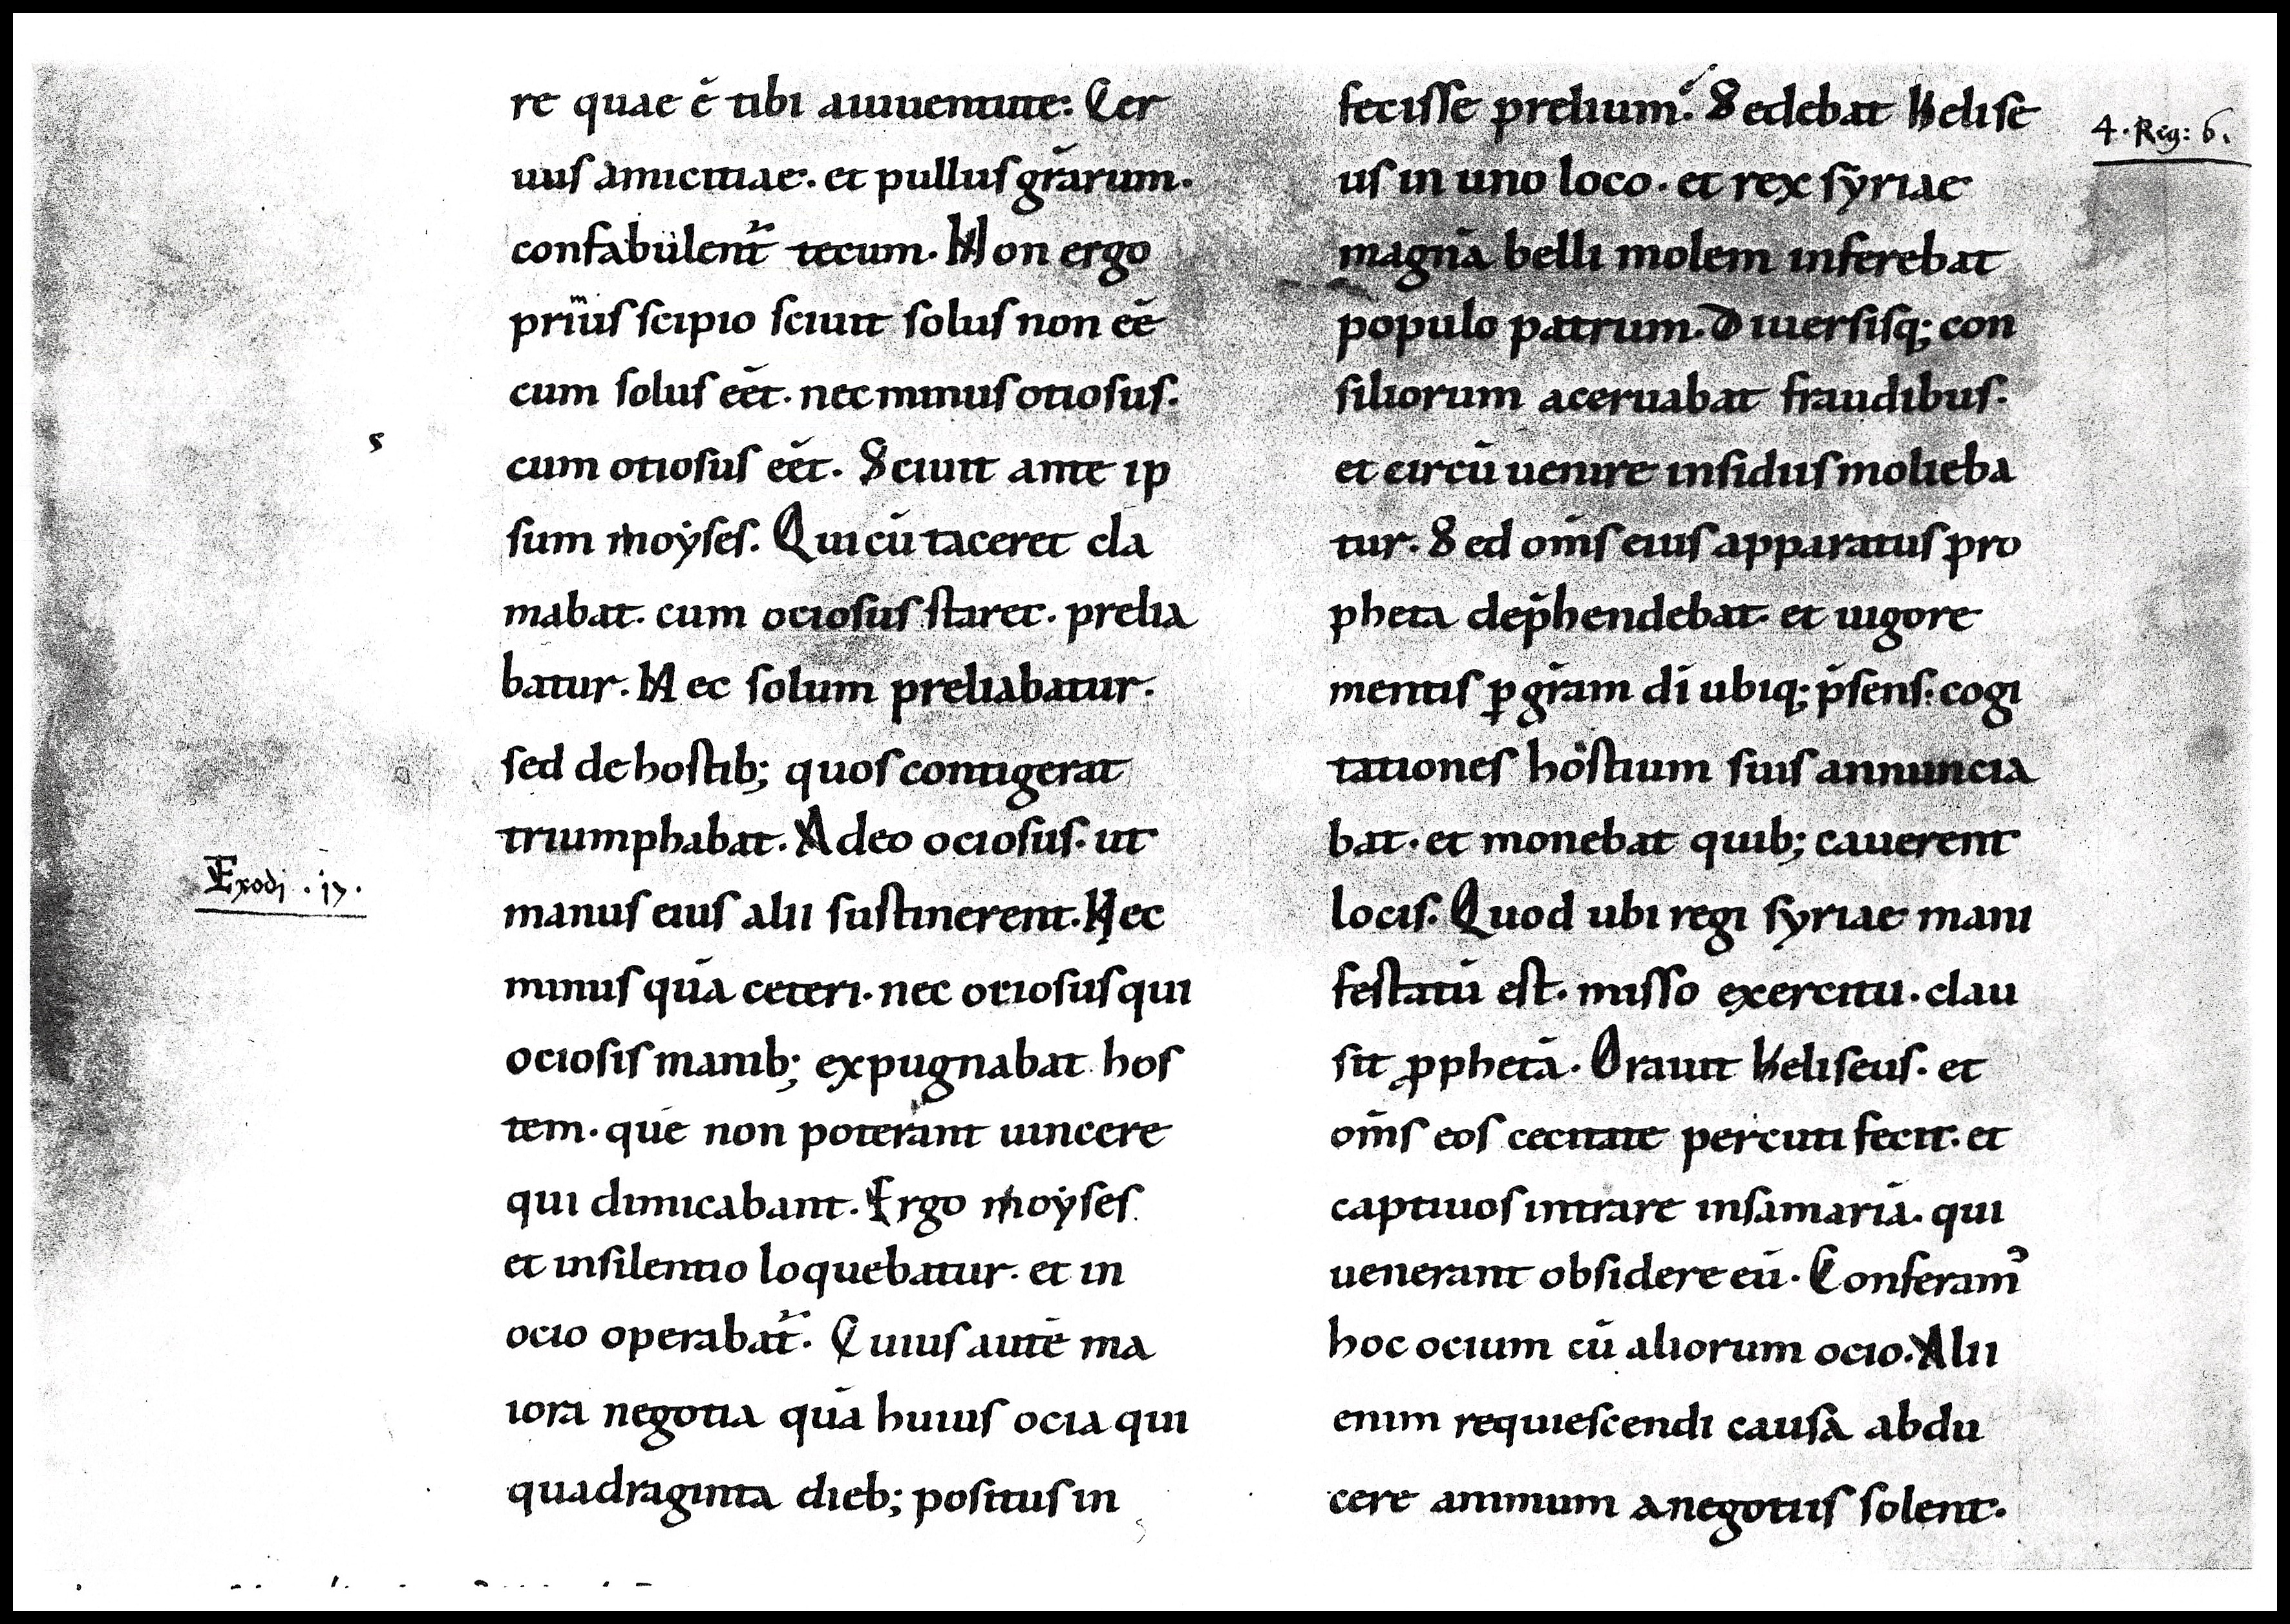 re quae ē tibi aiuuentute: Cer
uus amicitiae. et pullus grārum.
confabulent᷑ tecum. Non ergo
prius scipio sciuit solus non eē
cum solus eēt. nec minus otiosus.
s
cum otiosus eēt. Sciuit ante ip
sum moẏses. Qui cū taceret cla
mabat. cum ociosus staret. prelia
batur. Nec solum preliabatur.
sed de hostib; quos contigerat
triumphabat. Adeo ociosus. ut
Exodi . 17.
manus eius alii sustinerent. Nec
minus quā ceteri. nec otiosus qui
ociosis manib; expugnabat hos
tem. quē non poterant uincere
qui dimicabant. Ergo moẏses
et insilentio loquebatur. et in
ocio operabat᷑. Cuius autē ma
iora negotia quā huius ocia qui
quadraginta dieb; positus in
fecisse prelium. Sedebat Helise
4. Reg: 6.
us in uno loco. et rex sẏriae
magnā belli molem inferebat
populo patrum. Diuersisq; con
siliorum aceruabat fraudibus.
et circū uenire insidiis molieba
tur. Sed om̄s eius apparatus pro
pheta dep̄hendebat. et uigore
mentis ꝑ gr̄am dī ubiq; p̄sens: cogi
tationes hostium suis annuncia
bat. et monebat quib; cauerent
locis. Quod ubi regi syriae mani
festatū est. misso exercitu. clau
sit ꝓphetā. Orauit Heliseus. et
om̄s eos cecitate percuti fecit. et
captiuos intrare insamariā. qui
uenerant obsidere eū. Conferamꝰ
hoc ocium cū aliorum ocio. Alii
enim requiescendi causa abdu
cere animum anegotiis solent.